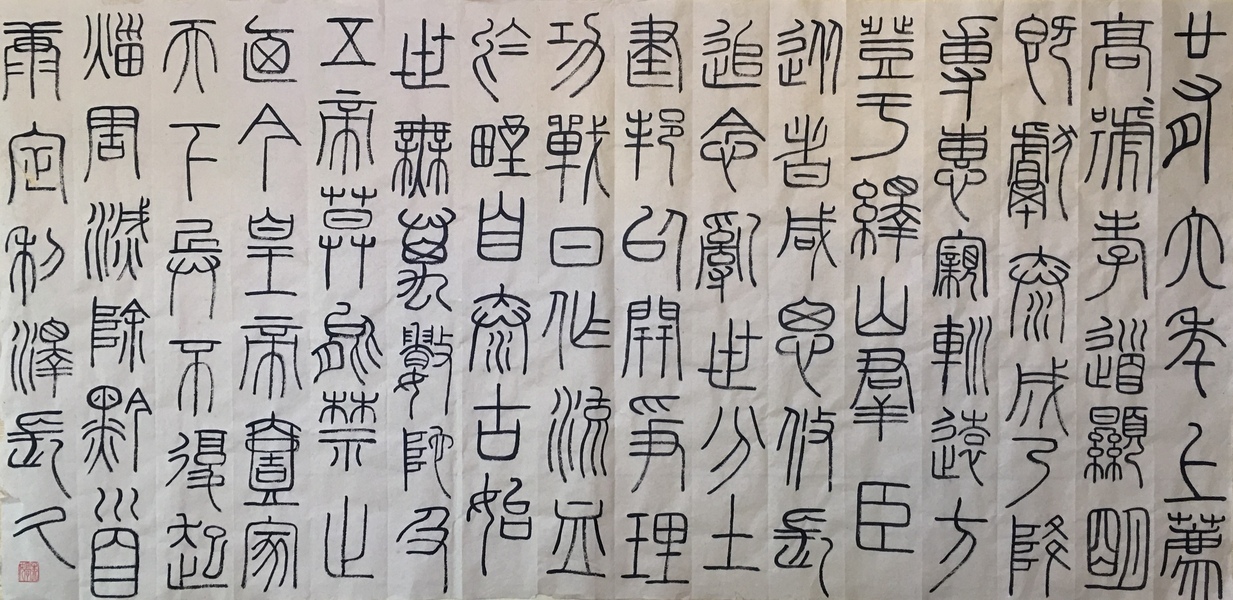 廿有六年上薦
高號孝道顯明
既獻泰成乃降
專惠親巡遠方
登于繹山羣臣
從者咸思攸長
追念亂世分土
建邦以開爭理
功戰日作流血
於野自泰古始
世無萬數陀及
五帝莫能禁止
廼今皇帝壹家
天下兵不復起
災害滅除黔首
康定利澤長久